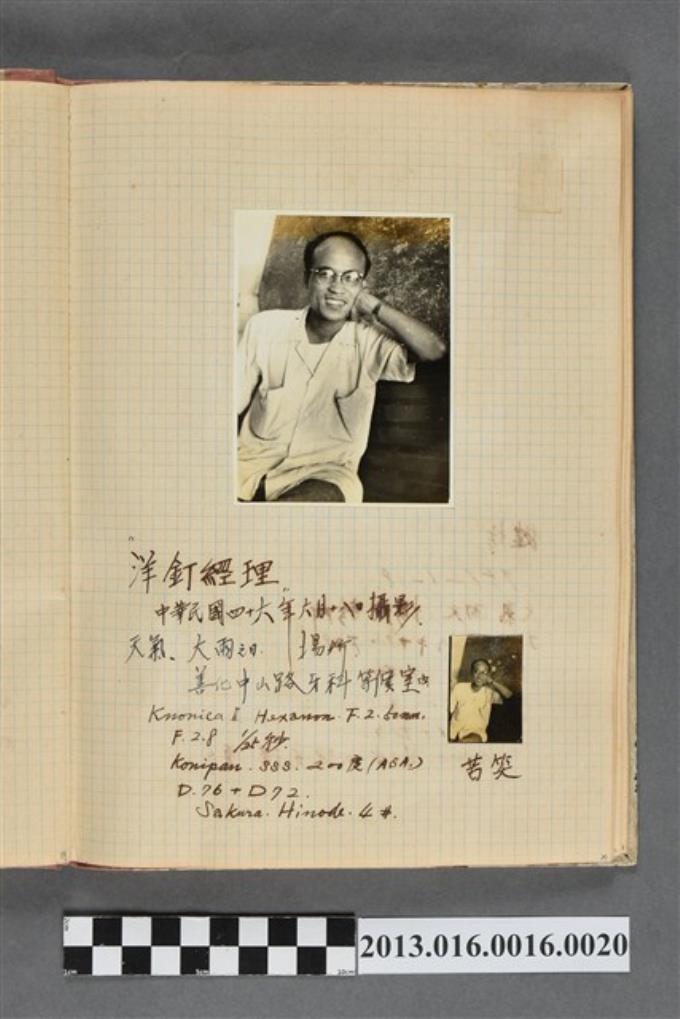 "洋釘經理"
中華民國四十六年六月十八日攝影、
天氣、大雨之日. 場所
善化中山路牙科等候室內
Knonica Ⅱ Hexanon. F.2. 50mm.
F.2.8 1/25秒.
Konipan. SSS. 200度(ASA.)
D.76 + D72.
Sakura. Hinode. 4#.
苦笑
2013.016.0016.0020